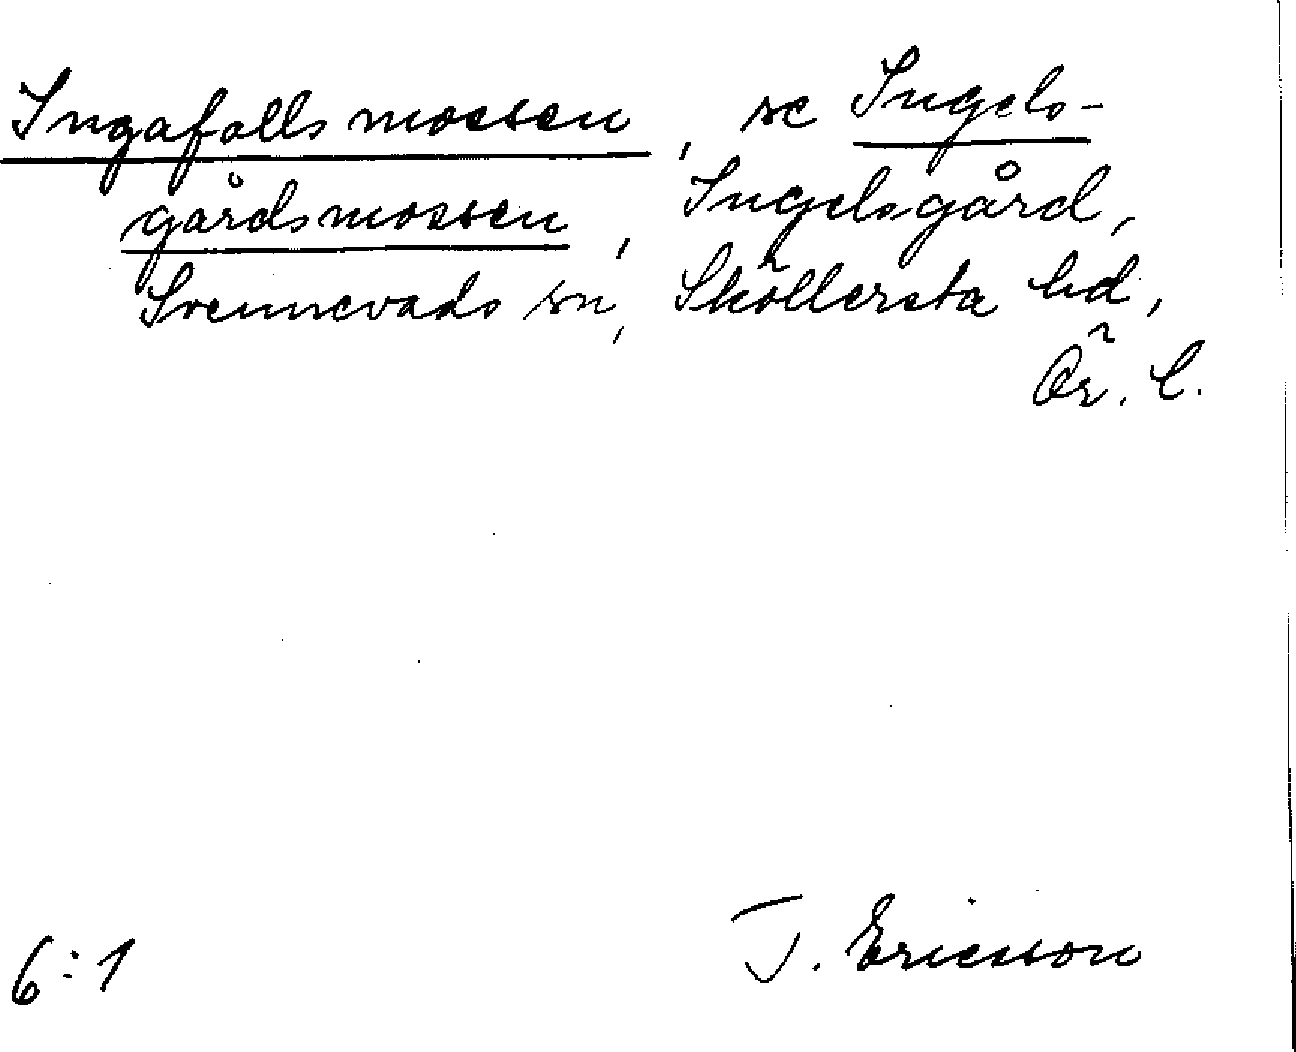 Ingafallsmossen, se Ingels-
gårdsmossen, Ingelsgård,
Svennevads sn, Sköllersta hd,
Ör. l.
6:1 T. Ericsson